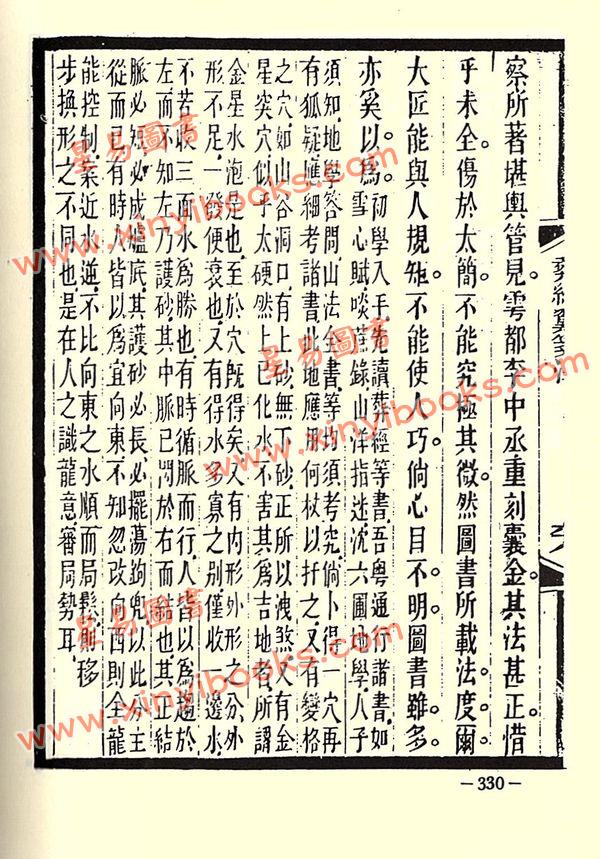 察所著堪輿管見雩都李中丞重刻囊金其法甚正惜
乎未全傷於太簡不能究極其微然圖書所載法度爾
大匠能與人規矩不能使人巧倘心目不明圖書雖多
亦奚以為初學入手先讀葬經等書吾粵通行諸書如
雪心賦啖蔗錄山洋指迷沈六圃地學人子
須知地學答問山法全書等均須考究倘卜得一穴再
有狐疑應細考諸書此地應用何杖以扦之又有變格
之穴如山谷洞口有上砂無下砂正所以洩煞又有金
星突穴似乎太硬然上已化水不害其為吉地者所謂
金星水泡是也至於穴既得矣又有內形外形之分外
形不足一發便衰也又有得水多寡之別僅收一邊水
不若收三面水為勝也有時循脈而行人皆以為過於
左而不知左乃護砂其中脈已閃於右而結也其正結
脈必短必成爐底其護砂必長必擺蕩鉤兜以此分主
從而已有時人皆以為宜向東不知忽改向西則全龍
能控制案近水逆不比向東之水順而局鬆則移
步換形之不同也是在人之識龍意審局勢耳
星易圖書
www.xinyibooks.com
星易圖書
www.xinyibooks.com
星易圖書
www.xinyibooks.com
－330－